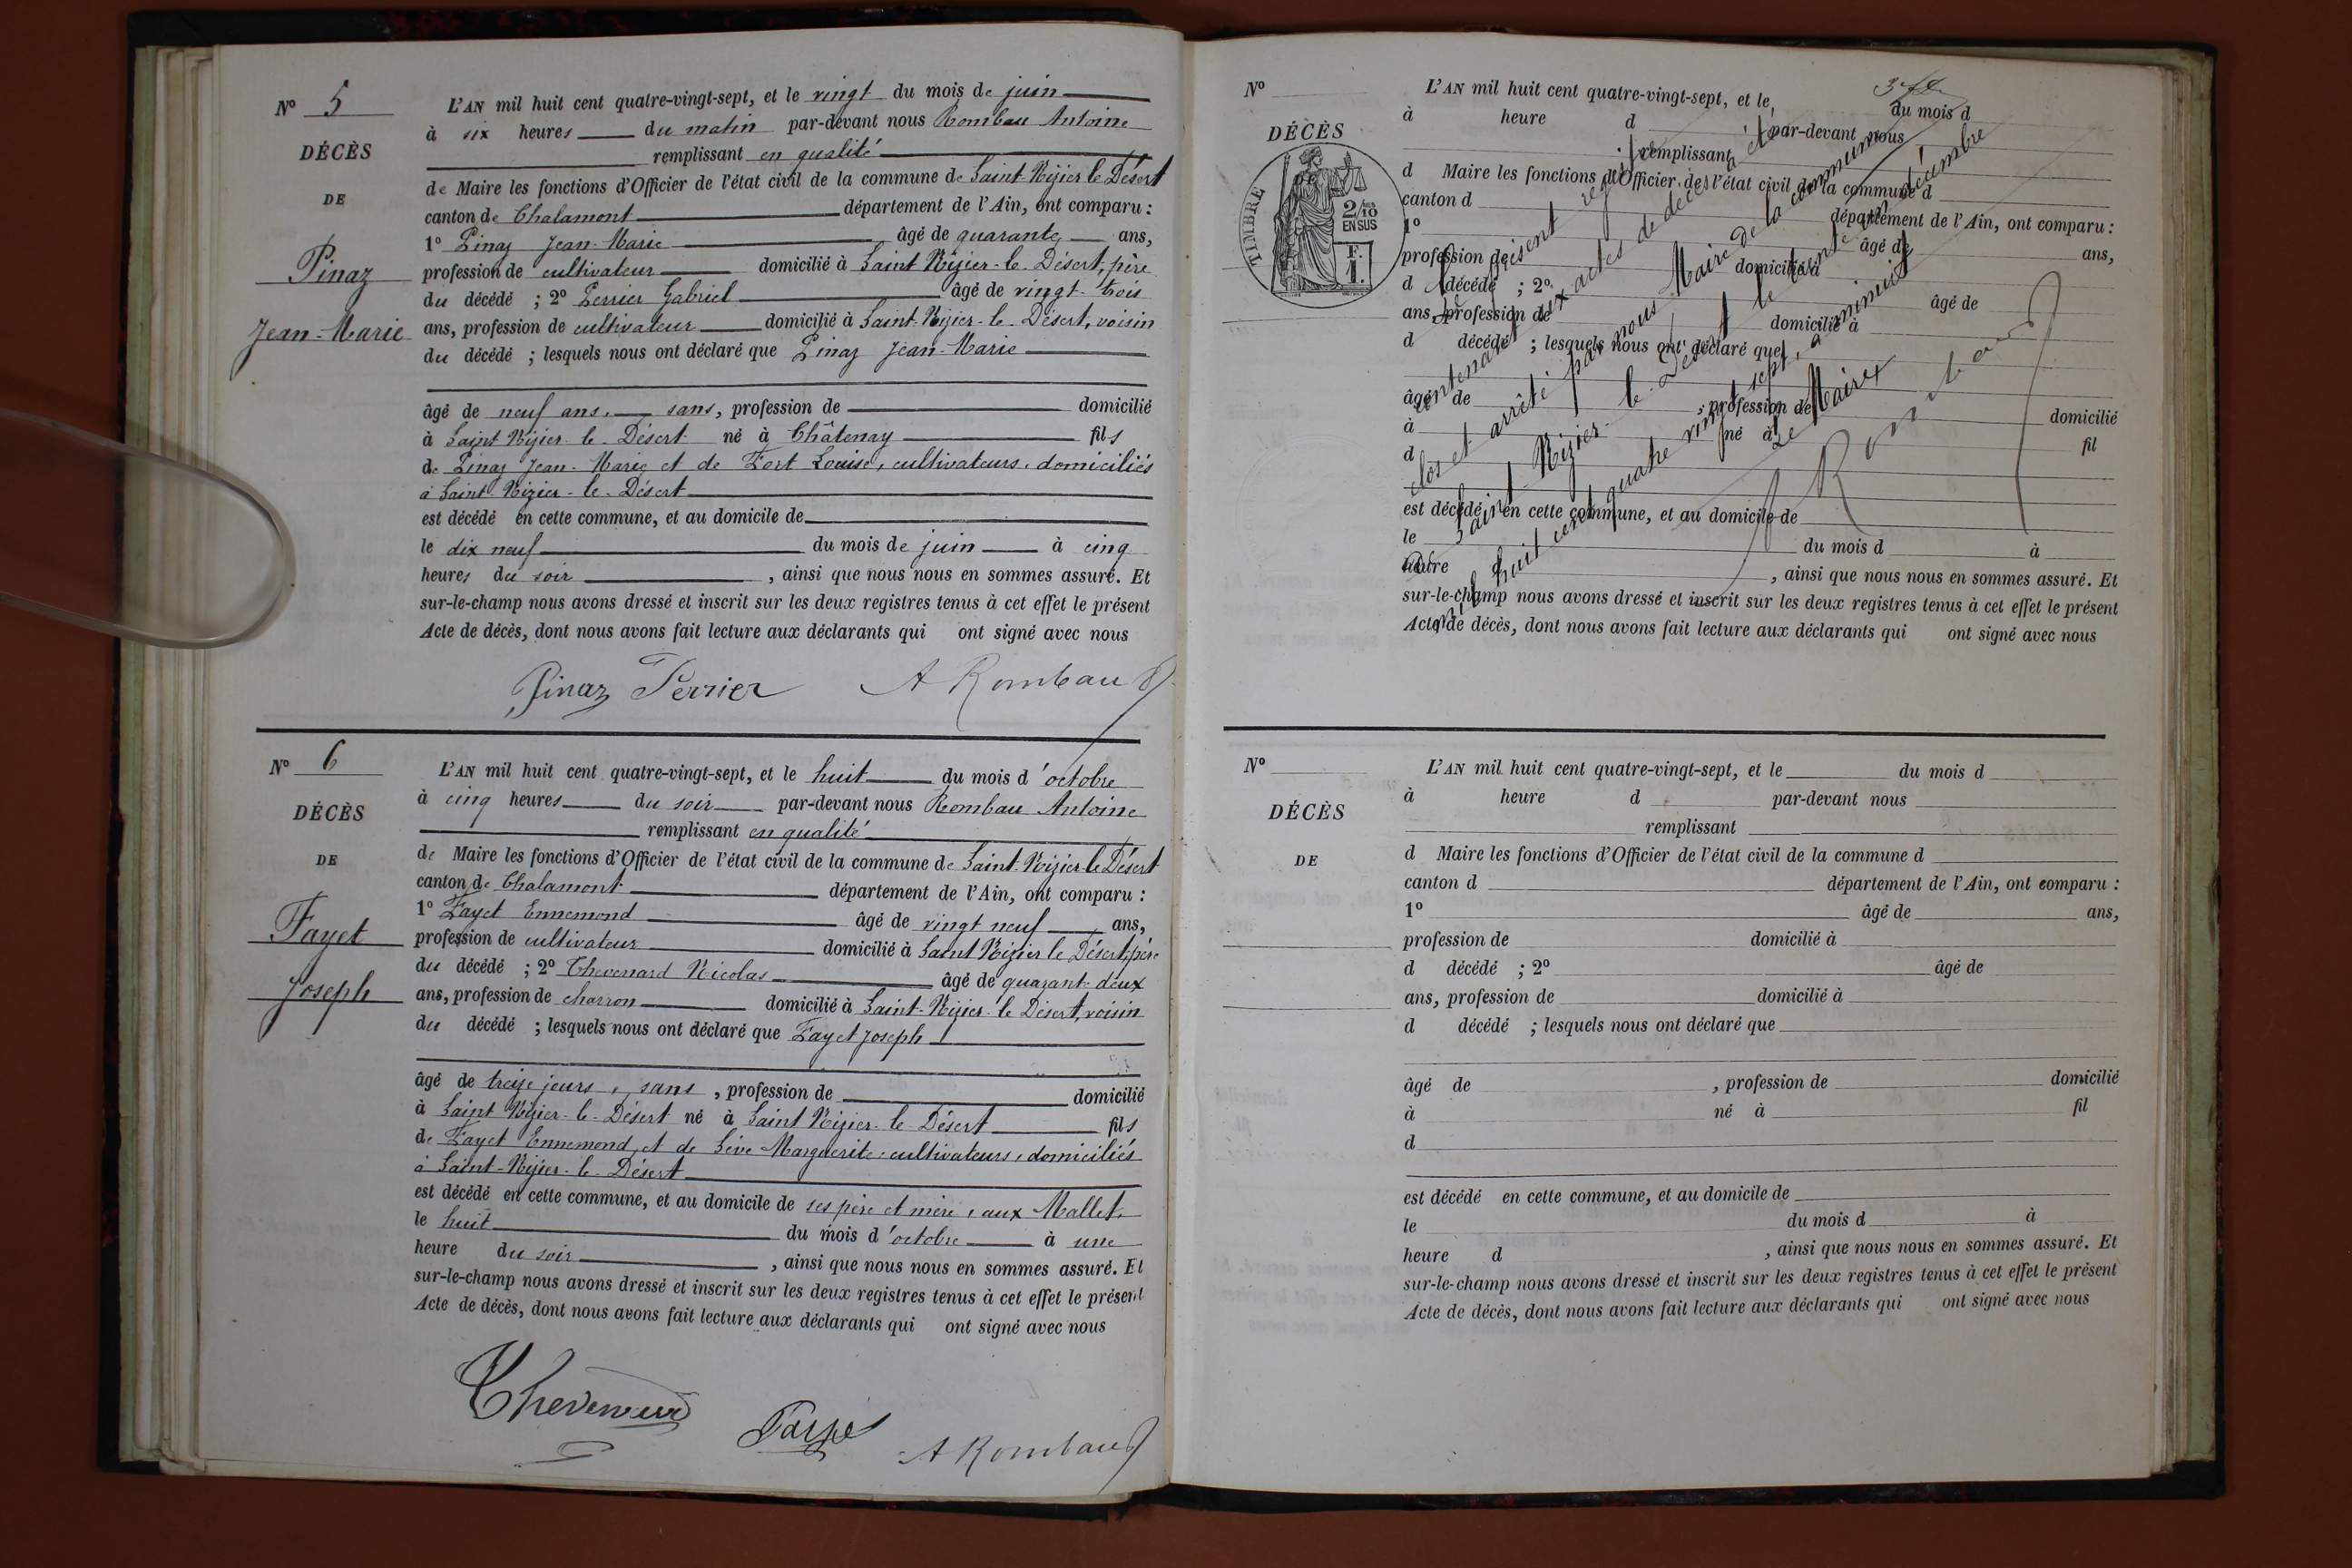 N° 5
DÉCÈS
DE
Pinaz
Jean-Marie
L'AN mil huit cent quatre-vingt-sept, et le vingt du mois de juin
à six heures du matin par-devant nous Rombau Antoine
remplissant en qualité
de Maire les fonctions d'Officier de l'état civil de la commune de Saint-Nizier le Désert
canton de Chalamont département de l'Ain, ont comparu :
1° Pinaz Jean-Marie âgé de quarante ans,
profession de cultivateur domicilié à Saint Nizier-le-Désert, père
du décédé ; 2° Perrier Gabriel âgé de vingt-trois
ans, profession de cultivateur domicilié à Saint-Nizier-le-Désert, voisin
du décédé ; lesquels nous ont déclaré que Pinaz Jean-Marie
âgé de neuf ans, sans, profession de domicilié
à Saint Nizier-le-Désert né à Châtenay fils
de Pinaz Jean-Marie et de Fort Louise, cultivateurs, domiciliés
à Saint-Nizier-le-Désert
est décédé en cette commune, et au domicile de
le dix neuf du mois de juin à cinq
heures du soir, ainsi que nous nous en sommes assuré. Et
sur-le-champ nous avons dressé et inscrit sur les deux registres tenus à cet effet le présent
Acte de décès, dont nous avons fait lecture aux déclarants qui ont signé avec nous
Pinaz Perrier A Rombau
N° 6
DÉCÈS
DE
Fayet
Joseph
L'AN mil huit cent quatre-vingt-sept, et le huit du mois d'octobre
à cinq heures du soir par-devant nous Rombau Antoine
remplissant en qualité
de Maire les fonctions d'Officier de l'état civil de la commune de Saint-Nizier-le Désert
canton de Chalamont département de l'Ain, ont comparu :
1° Fayet Ennemond âgé de vingt neuf ans,
profession de cultivateur domicilié à Saint Nizier le Désert, père
du décédé ; 2° Thevenard Nicolas âgé de quarant-deux
ans, profession de charron domicilié à Saint-Nizier-le Désert, voisin
du décédé ; lesquels nous ont déclaré que Fayet Joseph
âgé de treize jours, sans, profession de domicilié
à Saint Nizier-le-Désert né à Saint Nizier-le-Désert fils
de Fayet Ennemond et de Sève Marguerite, cultivateurs, domiciliés
à Saint-Nizier-le-Désert
est décédé en cette commune, et au domicile de ses père et mère, aux Mallet,
le huit du mois d'octobre à une
heure du soir, ainsi que nous nous en sommes assuré. Et
sur-le-champ nous avons dressé et inscrit sur les deux registres tenus à cet effet le présent
Acte de décès, dont nous avons fait lecture aux déclarants qui ont signé avec nous
A Rombau
N°
DÉCÈS
DE
TIMBRE
2/10
EN SUS
F.
1.
L'AN mil huit cent quatre-vingt-sept, et le du mois d
à heure d par-devant nous
remplissant
d Maire les fonctions d'Officier de l'état civil de la commune d
canton d département de l'Ain, ont comparu :
1° âgé de ans,
profession de domicilié à
d décédé ; 2° âgé de
ans, profession de domicilié à
d décédé ; lesquels nous ont déclaré que
âgé de , profession de domicilié
à né à fil
d
est décédé en cette commune, et au domicile de
le du mois d à
heure d , ainsi que nous nous en sommes assuré. Et
sur-le-champ nous avons dressé et inscrit sur les deux registres tenus à cet effet le présent
Acte de décès, dont nous avons fait lecture aux déclarants qui ont signé avec nous
Le présent registre
contenant six actes de décès a été
clos et arrêté par nous Maire de la commune
de Saint-Nizier-le-Désert le trente un décembre
mil huit cent quatre vingt sept, à minuit
Le Maire
A Rombau
N°
DÉCÈS
DE
L'AN mil huit cent quatre-vingt-sept, et le du mois d
à heure d par-devant nous
remplissant
d Maire les fonctions d'Officier de l'état civil de la commune d
canton d département de l'Ain, ont comparu :
1° âgé de ans,
profession de domicilié à
d décédé ; 2° âgé de
ans, profession de domicilié à
d décédé ; lesquels nous ont déclaré que
âgé de , profession de domicilié
à né à fil
d
est décédé en cette commune, et au domicile de
le du mois d à
heure d , ainsi que nous nous en sommes assuré. Et
sur-le-champ nous avons dressé et inscrit sur les deux registres tenus à cet effet le présent
Acte de décès, dont nous avons fait lecture aux déclarants qui ont signé avec nous